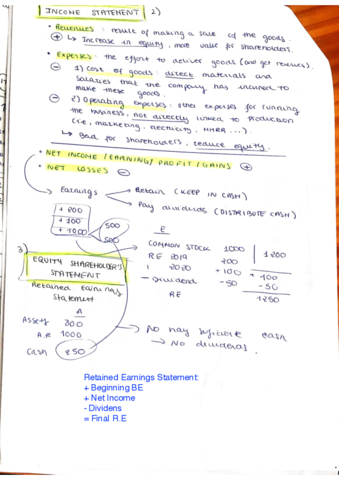 INCOME STATEMENT 2)
• Revenues : result of making a sale of the goods.
+ ↳ Increase in equity, more value for shareholders.
• Expenses : the effort to deliver goods (and get revenues).
- 1) Cost of goods : direct materials and
salaries that the company has incurred to
make these goods.
- 2) Operating expenses : other expenses for running
the business, not directly linked to production
(i.e, marketing, electricity, HHRR ...).
↳ Bad for shareholders, reduce equity.
• NET INCOME / EARNING / PROFIT / GAINS +
• NET LOSSES -
Earnings → Retain (KEEP IN CASH)
→ Pay dividends (DISTRIBUTE CASH)
+ 200
+ 100
+ 1000
500
500
E
COMMON STOCK 1000 1200
RE 2019 200
2020 +100 +100
- Dividend -50 -50
RE 1250
3)
EQUITY SHAREHOLDER'S
STATEMENT
Retained Earnings
Statement
A
Assets 300
A.R 1000
Cash 250
→ No hay suficiente cash
→ No dividends.
Retained Earnings Statement:
+ Beginning BE
+ Net Income
- Dividens
= Final R.E